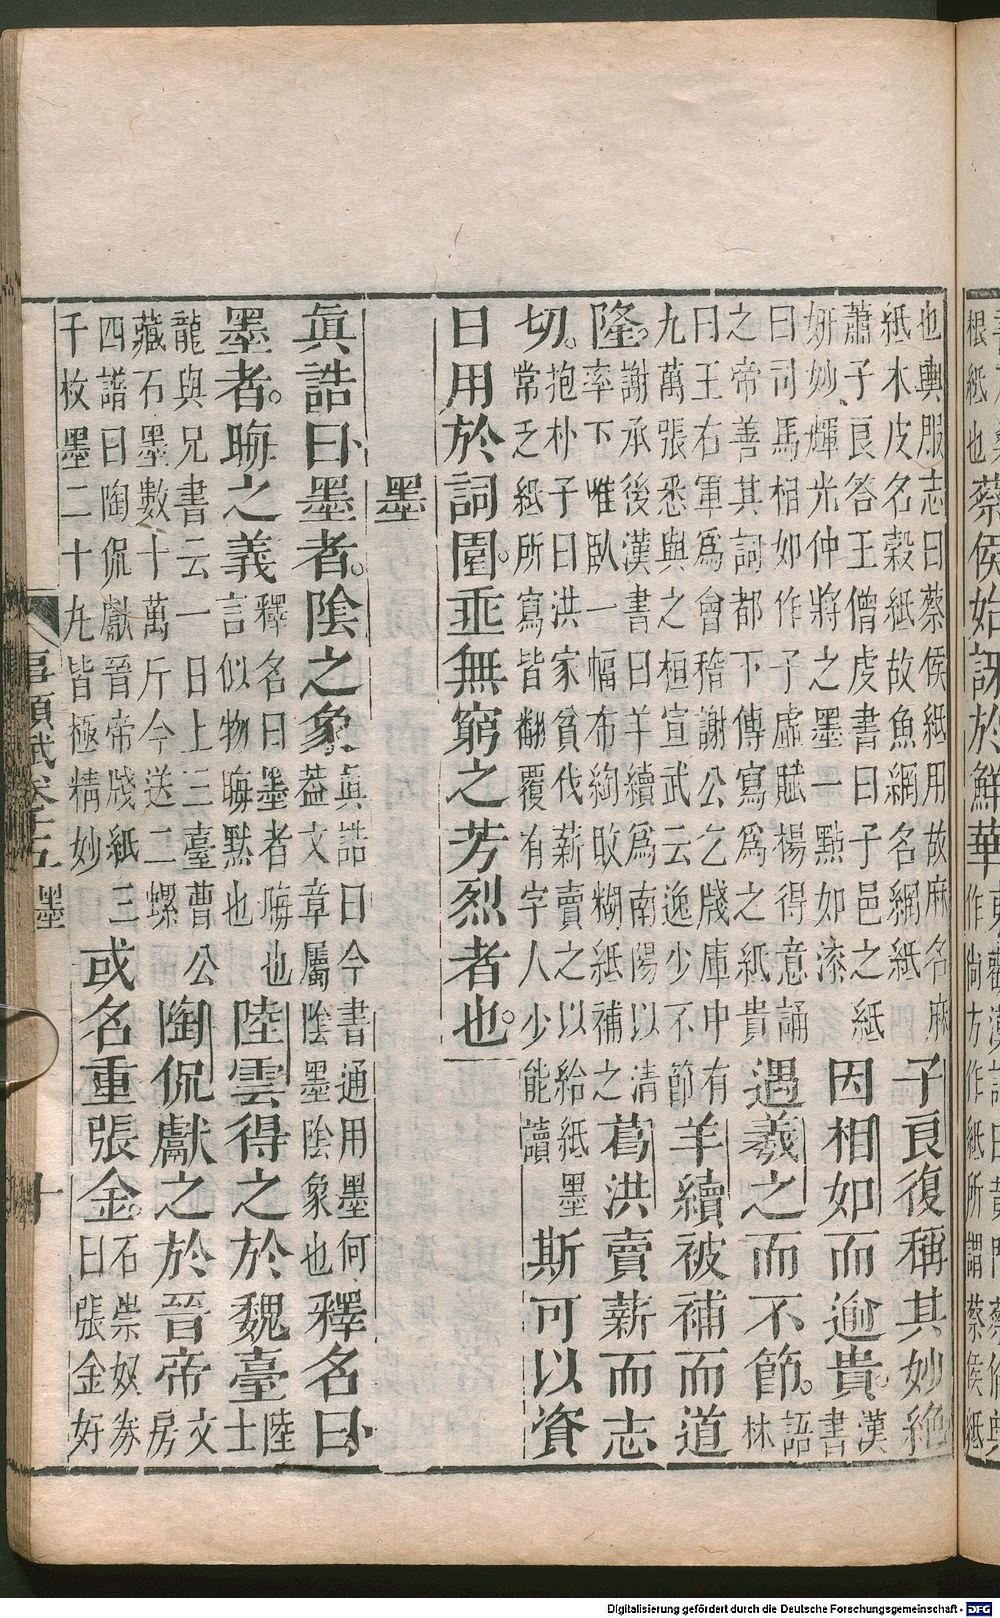 根紙也
蔡侯始訝於鮮華
作尙方作紙所謂蔡侯紙
也輿服志曰蔡侯紙用故麻名麻
紙木皮名榖紙故魚網名網紙
子良復稱其妙絶
蕭子良答王僧虔書曰子邑之紙
妍妙輝光仲將之墨一點如漆
因相如而逾貴。
漢
書
曰司馬相如作子虛賦楊得意誦
之帝善其詞都下傳寫爲之紙貴
遇羲之而不節。
語
林
曰王右軍爲會稽謝公乞牋庫中有
九萬張悉與之桓宣武云逸少不節
羊續被補而道
隆。
謝承後漢書曰羊續爲南陽以清
率下唯臥一幅布綯敗糊紙補之
葛洪賣薪而志
切。
抱朴子曰洪家貧伐薪賣之以給紙墨
常乏紙所寫皆翻覆有字人少能讀
斯可以資
日用於詞園。垂無窮之芳烈者也。
墨
眞誥曰墨者。陰之象
眞誥曰今書通用墨何
葢文章屬陰墨陰象也
釋名曰
墨者。晦之義
釋名曰墨者晦也
言似物晦默也
陸雲得之於魏臺
陸
士
龍與兄書云一日上三臺曹公
藏石墨數十萬斤今送二螺
陶侃獻之於晉帝
文
房
四譜曰陶侃獻晉帝牋紙三
千枚墨二十丸皆極精妙
或名重張金。
石崇奴券
曰張金好
事類賦卷十五 墨 十
Digitalisierung gefördert durch die Deutsche Forschungsgemeinschaft - DFG